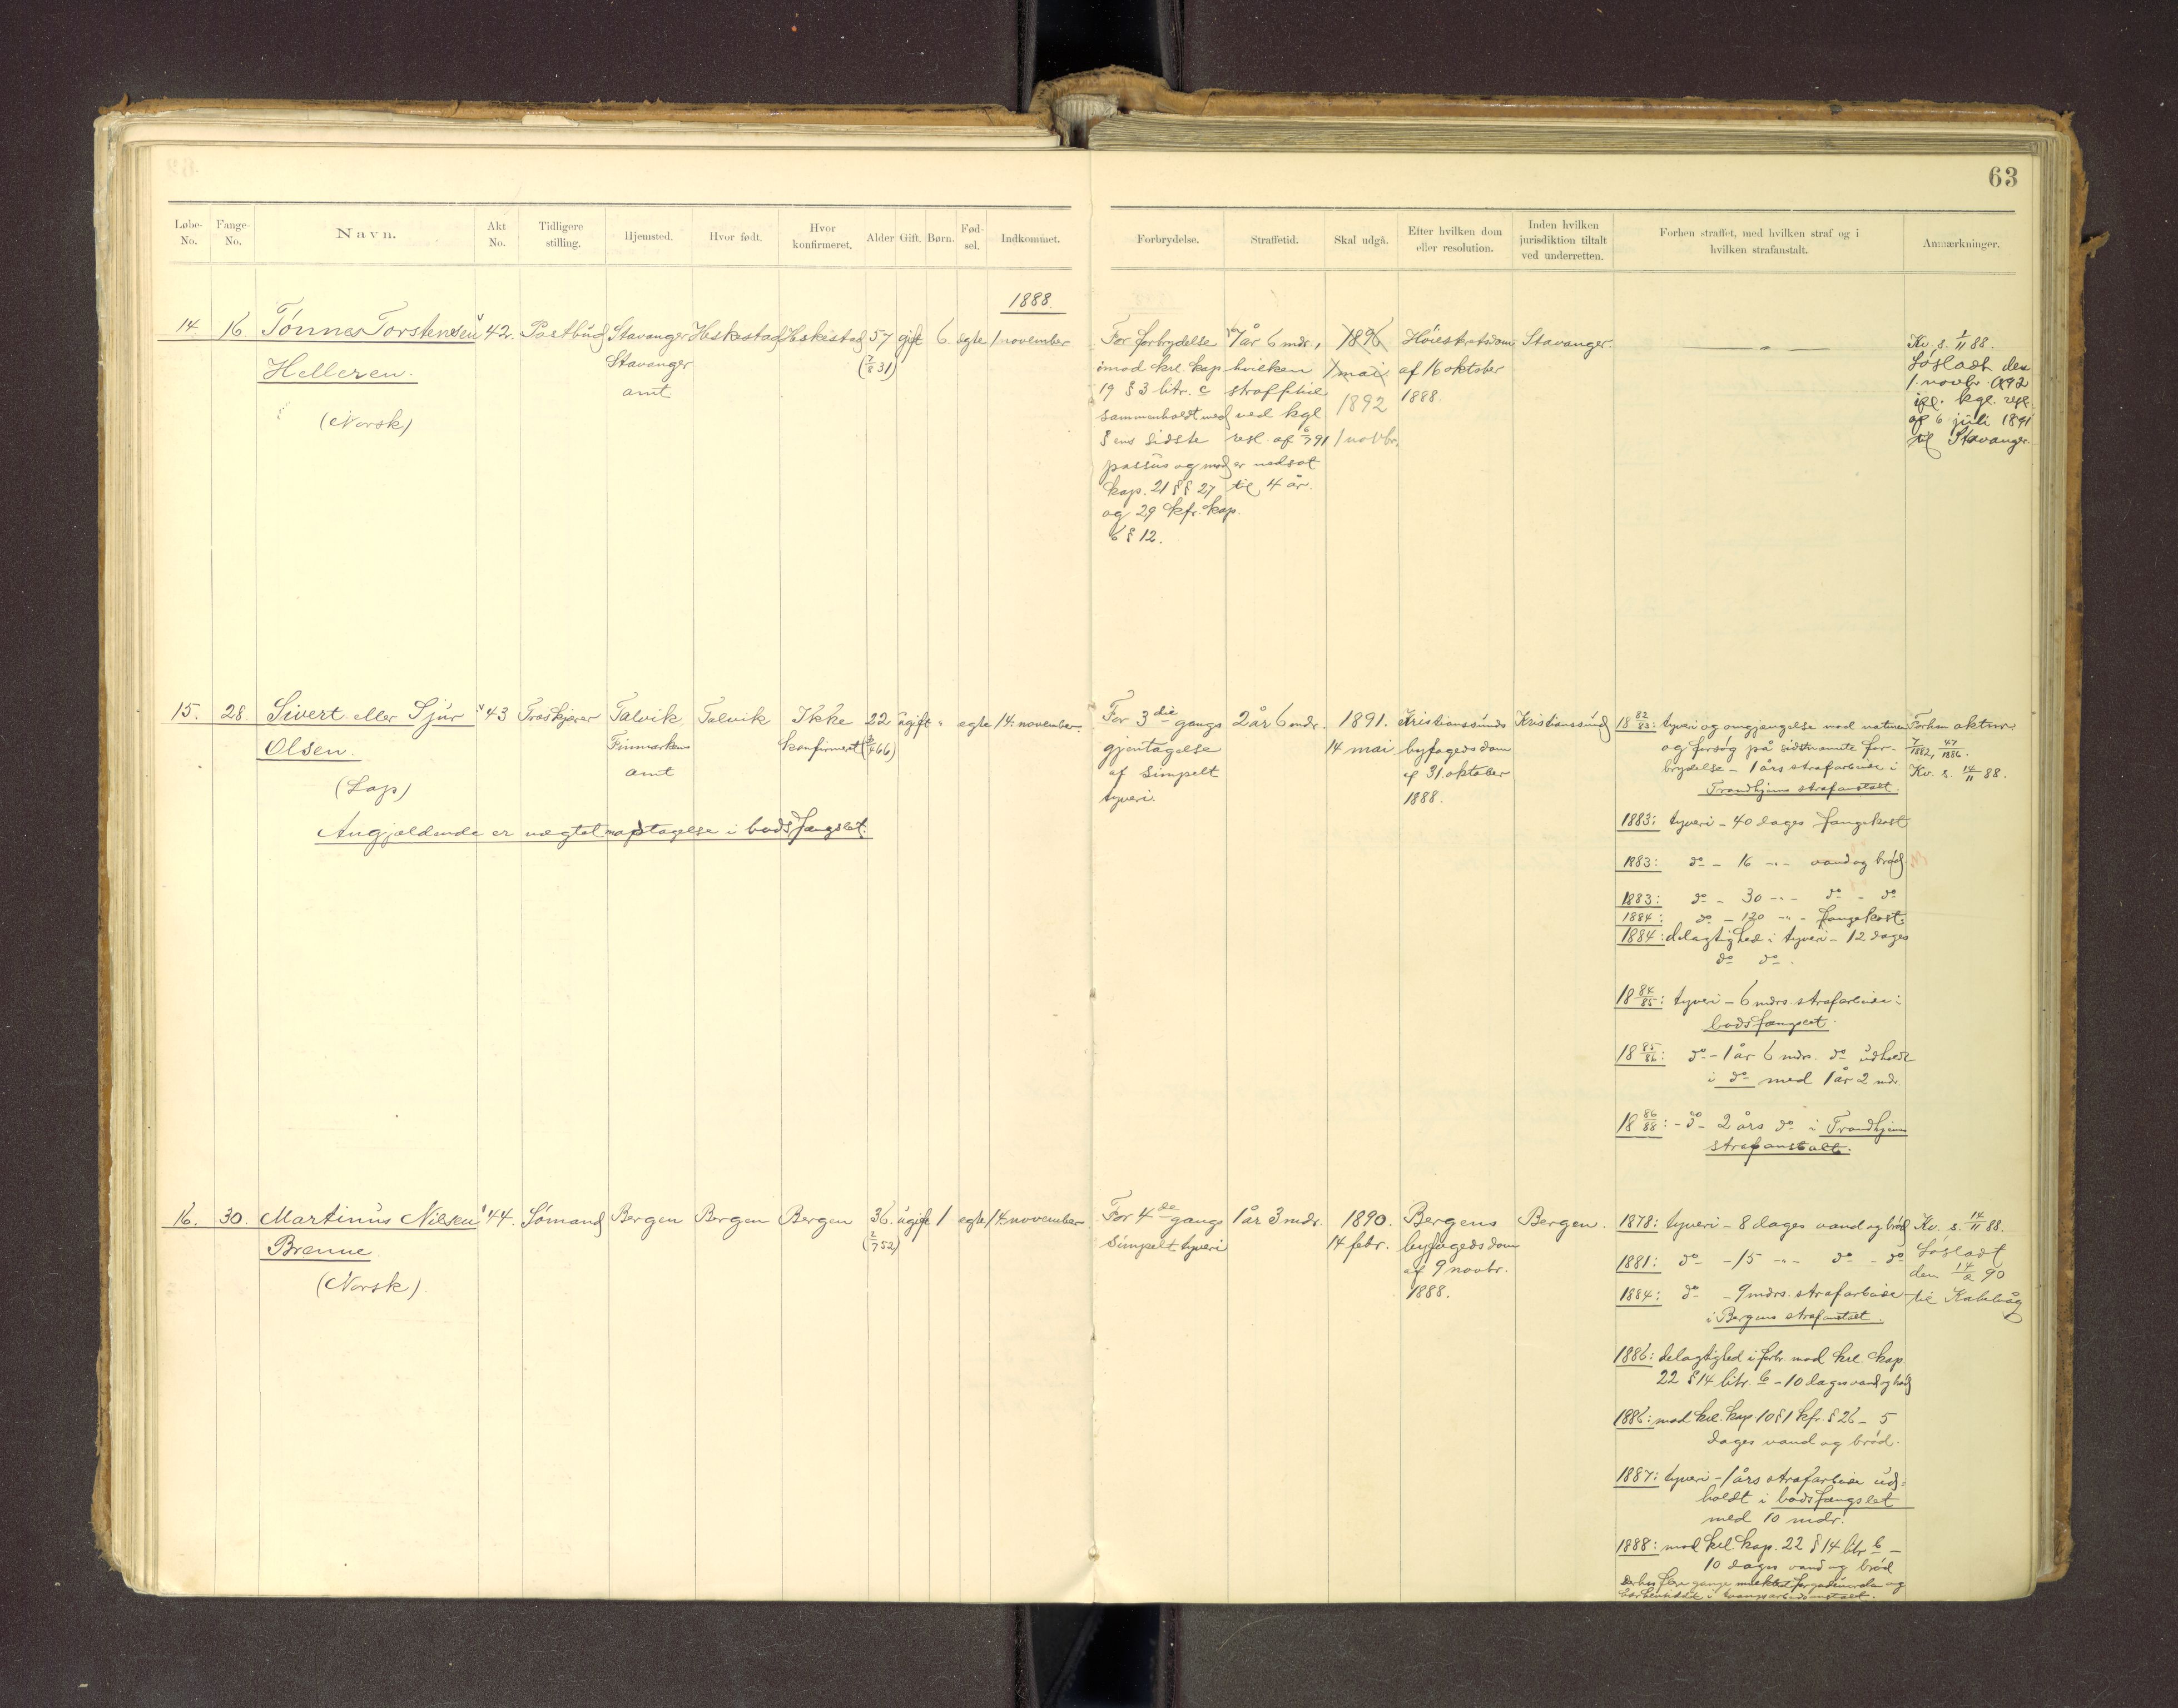 63
Løbe-No. Fange-No. Navn. Akt No. Tidligere stilling. Hjemsted. Hvor født. Hvor konfirmeret. Alder Gift. Børn. Fød-sel. Indkommet. Forbrydelse. Straffetid. Skal udgå. Efter hvilken dom eller resolution. Inden hvilken jurisdiktion tiltalt ved underretten. Forhen straffet, med hvilken straf og i hvilken strafanstalt. Anmærkninger.
1888.
14 16 Tönnes Torstensen 42. Postbud Stavanger Heskestad Heskestad 57 gift 6. egte 1 november
Helleren. Stavanger (7/8 31)
(Norsk) amt
For forbrydelse
imod krl. kap
19 § 3 litr. c
sammenholdt med
§ ens sidste
passus og mod
kap. 21 §§ 27
og 29 kfr. kap.
6 § 12.
7 år 6 mdr.,
hvilken
straffetid
ved kgl
resl. af 6/7 91
er nedsat
til 4 år.
1896
1 mai
1892
1 novbr.
Höiesteretsdom
af 16 oktober
1888.
Stavanger.
Kv. s. 1/11 88.
Lösladt den
1. novbr. 1892
ifl. kgl. resl.
af 6 juli 1891
til Stavanger.
15. 28. Sivert eller Sjur 43 Træskjærer Talvik Talvik Ikke 22 ugift " egte 14. november.
Olsen. Finmarkens konfirmeret
(Lap) amt
Angjældende er nægtet modtagelse i bodsfængslet.
For 3die gangs
gjentagelse
af simpelt
tyveri.
2 år 6 mdr.
1891.
14 mai
Kristianssunds
byfogeds dom
af 31. oktober
1888.
Kristianssund
18 82/83: tyveri og omgjængelse mod naturen
og forsøg på sidstnævnte for-
brydelse - 1 års strafarbeide i
Trondhjems strafanstalt.
1883: tyveri - 40 dages fangekost
1883: do - 16 -"- vand og bröd
1883: do - 30 -"- do - do
1884: do - 120 -"- fangekost.
1884: delagtighed i tyveri - 12 dages
do do.
18 84/85: tyveri - 6 mdrs. strafarbeide i
bodsfængslet.
18 85/86: do - 1 år 6 mdrs. do udholdt
i do med 1 år 2 mdr.
18 86/88: - do - 2 års do i Trondhjems
strafanstalt.
Forhen aktnr
7/1882, 47/1886.
Kv. s. 14/11 88.
16. 30. Martinus Nilsen 44. Sömand Bergen Bergen Bergen 36. ugift 1 egte 14. november
Brenne. (2/7 52)
(Norsk)
For 4de gangs
simpelt tyveri
1 år 3 mdr.
1890.
14 febr.
Bergens
byfogeds dom
af 9 novbr.
1888.
Bergen.
1878: tyveri - 8 dages vand og bröd
1881: do - 15 -"- do - do
1884: do - 9 mdrs. strafarbeide
i Bergens strafanstalt.
1886: delagtighed i forbr. mod krl. kap
22 § 14 litr. b - 10 dages vand og bröd
1886: mod krl. kap 10 § 1 kfr. § 26 - 5
dages vand og bröd.
1887: tyveri - 1 års strafarbeide ud-
holdt i bodsfængslet
med 10 mdr.
1888: mod krl. kap. 22 § 14 litr b -
10 dages vand og bröd
Desuden flere gange mulktert for gadeuorden og
Kv. s. 14/11 88.
Lösladt
den 14/2 90
til Kalvevåg